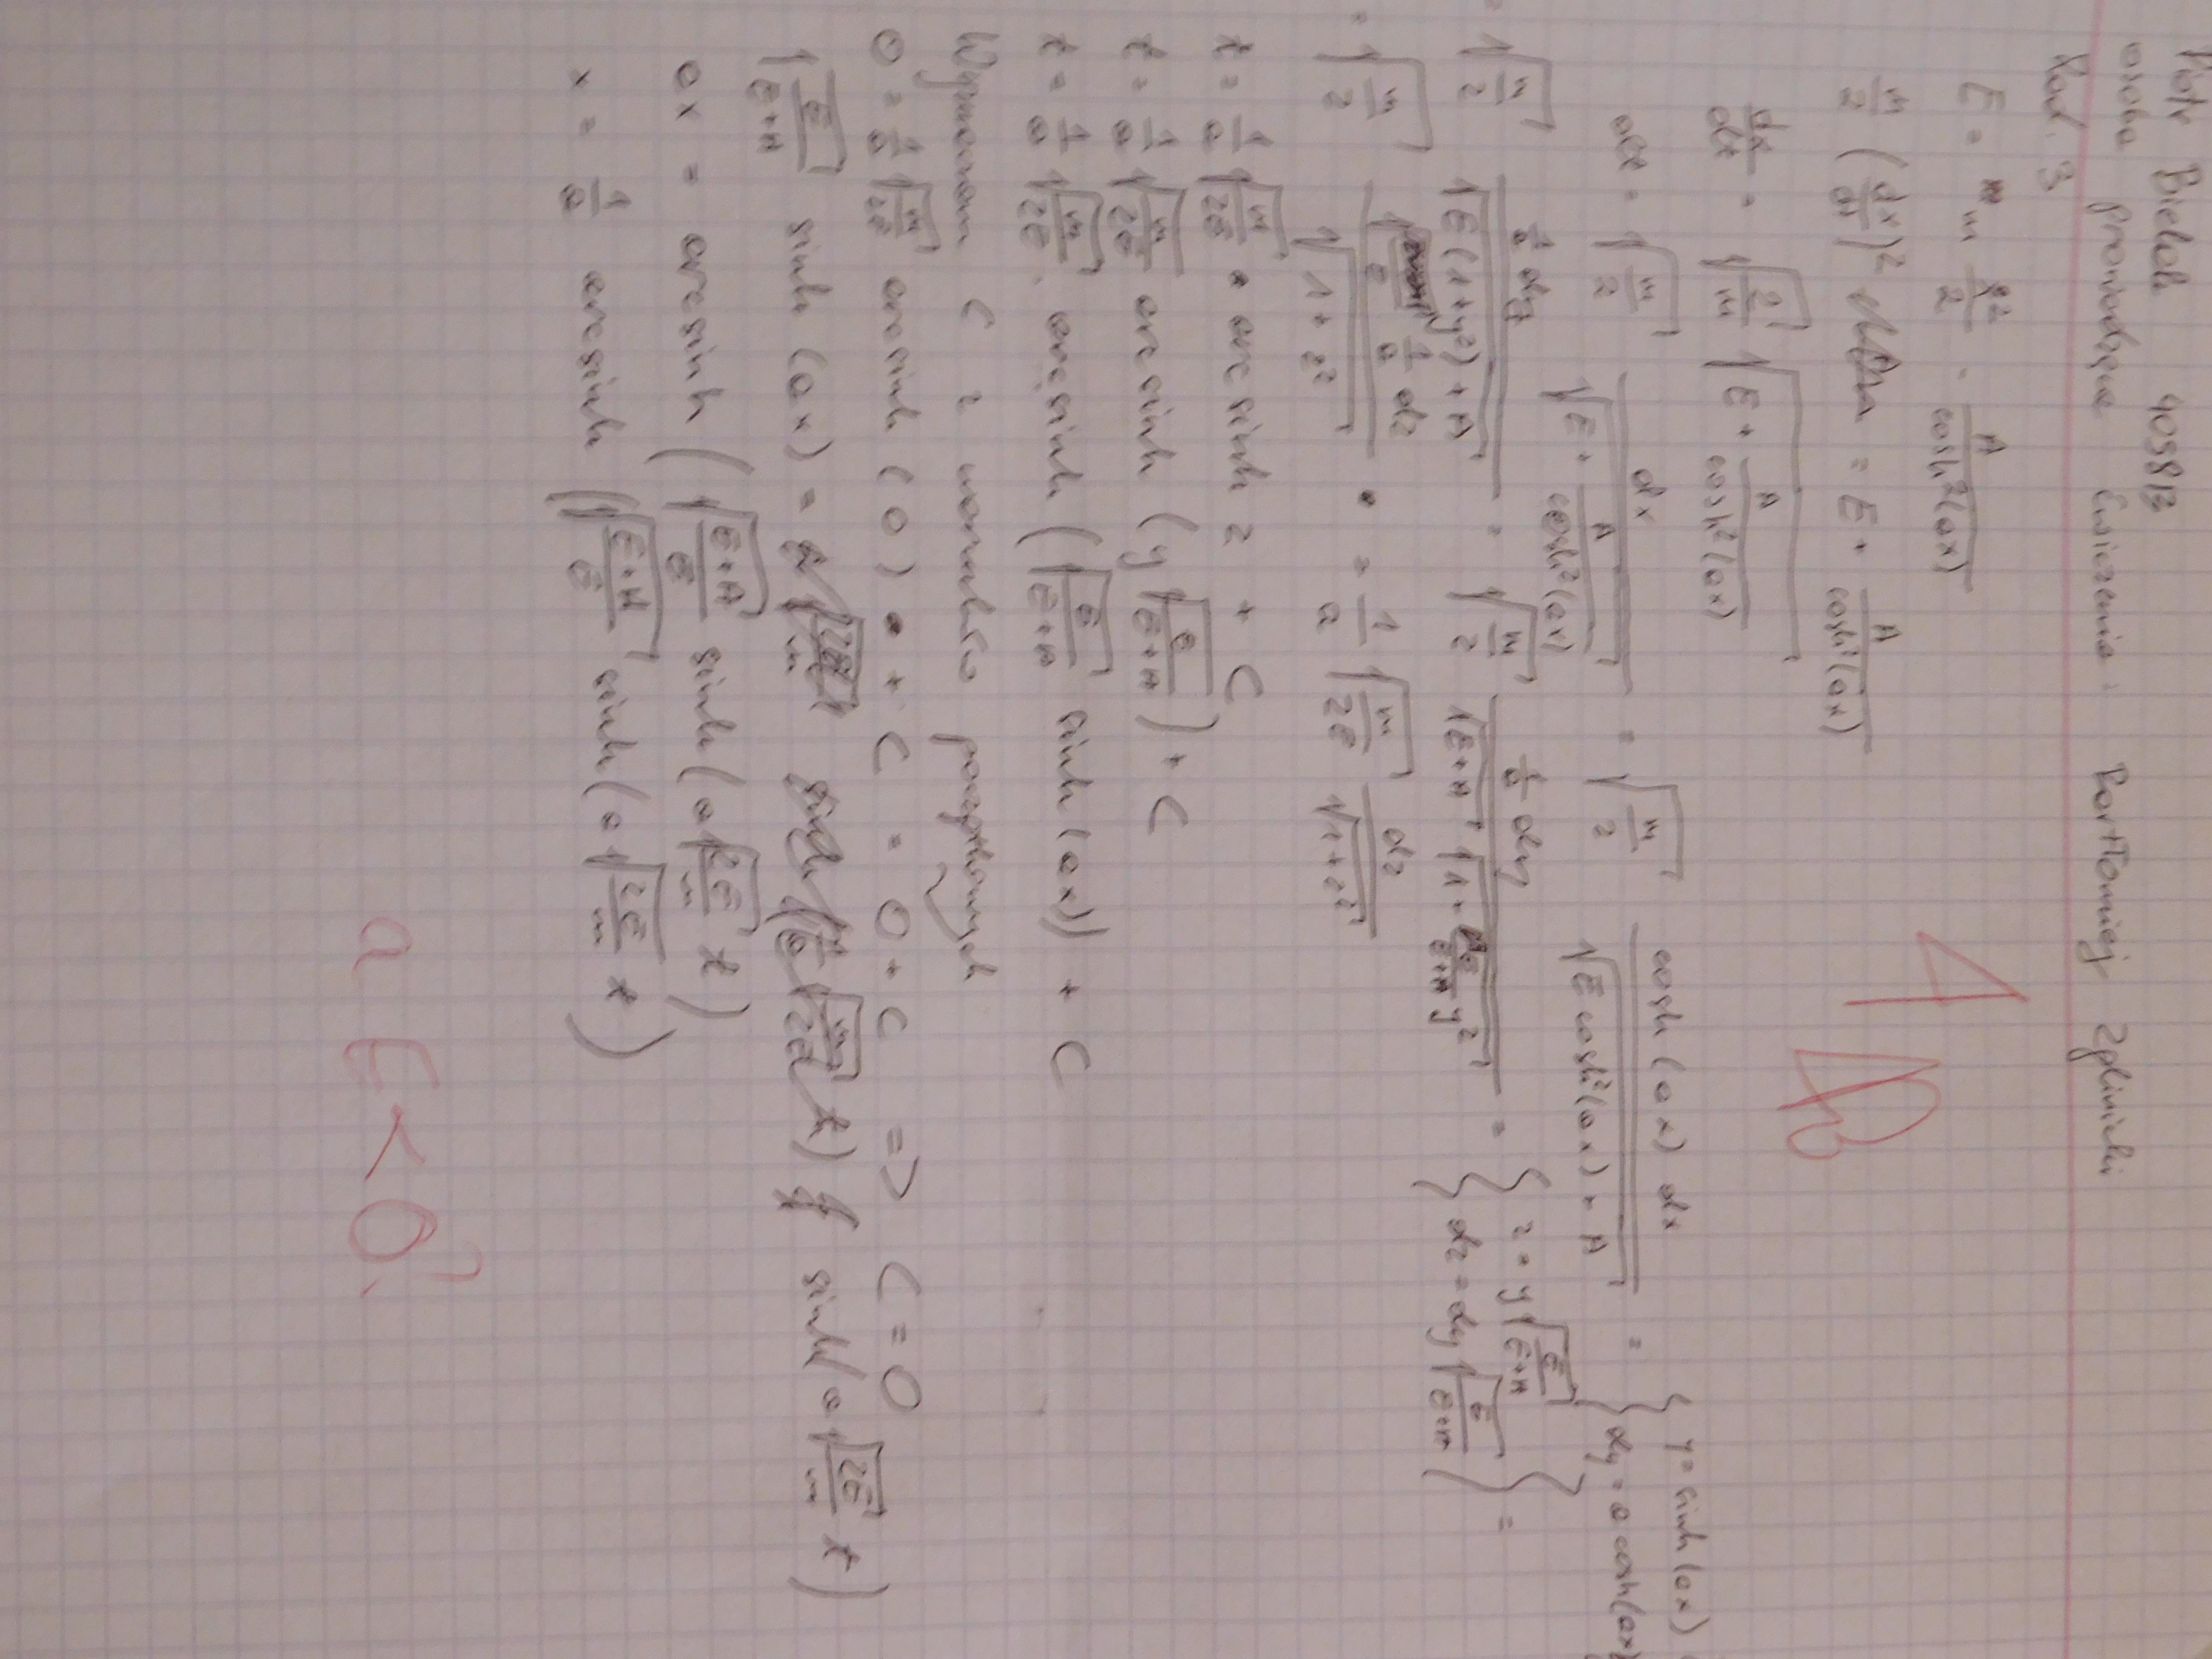 Piotr Bielak 409813
osoba prowadząca ćwiczenia: Bartłomiej Zglinicki
Zad. 3
E = m ẋ²/2 - A/cosh²(ax)
m/2 (dx/dt)² = E + A/cosh²(ax)
dx/dt = √(2/m) √(E + A/cosh²(ax))
dt = √(m/2) dx/√(E + A/cosh²(ax)) = √(m/2) cosh(ax) dx/√(E cosh²(ax) + A) = { y = sinh(ax) dy = a cosh(ax)
= √(m/2) 1/a dy/√(E(1+y²)+A) = √(m/2) 1/a dy/(√(E+A) √(1+ E/(E+A) y²)) = { z = y√(E/(E+A)) dz = dy√(E/(E+A)) } =
= √(m/2) 1/a dz/√(1+z²) = 1/a √(m/2E) dz/√(1+z²)
t = 1/a √(m/2E) · arc sinh z + C
t = 1/a √(m/2E) arc sinh (y √(E/(E+A))) + C
t = 1/a √(m/2E) · arc sinh (√(E/(E+A)) sinh(ax)) + C
Wyznaczam C z warunków początkowych
0 = 1/a √(m/2E) arc sinh (0) + C = 0 + C => C = 0
√(E/(E+A)) sinh (ax) = sinh(a √(2E/m) t)
ax = arc sinh (√((E+A)/E) sinh(a √(2E/m) t)
x = 1/a arc sinh (√((E+A)/E) sinh(a √(2E/m) t)
a E < 0?